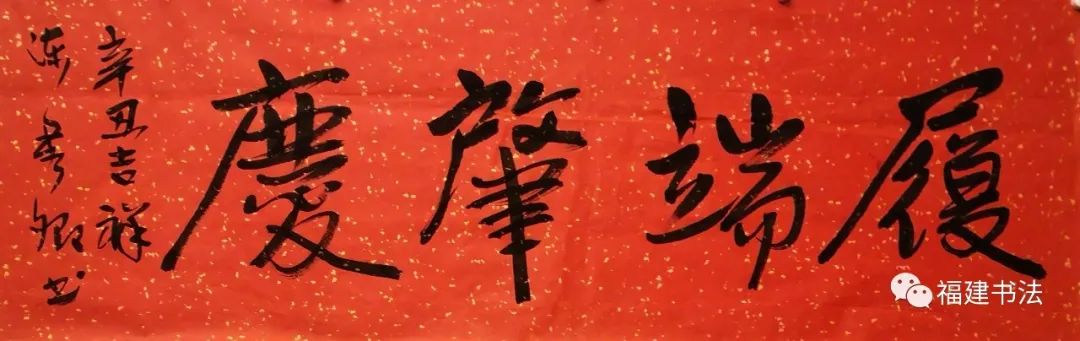 履端肇慶
辛丑吉祥
陳秀卿书
福建书法